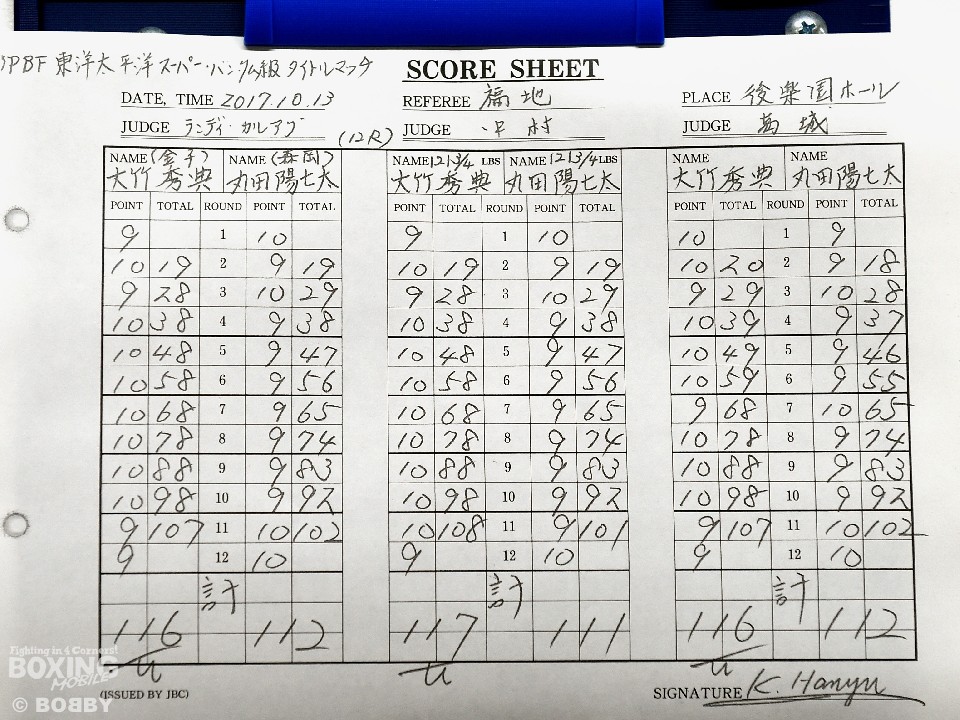 OPBF 東洋太平洋スーパー・バンタム級タイトルマッチ
SCORE SHEET
DATE, TIME 2017.10.13 REFEREE 福地 PLACE 後楽園ホール
JUDGE ランディ・カルアグ (12R) JUDGE 中村 JUDGE 葛城
NAME (金子) NAME (森岡) NAME 121 3/4 LBS NAME 121 3/4 LBS NAME NAME
大竹秀典 丸田陽七太 大竹秀典 丸田陽七太 大竹秀典 丸田陽七太
POINT TOTAL ROUND POINT TOTAL POINT TOTAL ROUND POINT TOTAL POINT TOTAL ROUND POINT TOTAL
9 1 10 9 1 10 10 1 9
10 19 2 9 19 10 19 2 9 19 10 20 2 9 18
9 28 3 10 29 9 28 3 10 29 9 29 3 10 28
10 38 4 9 38 10 38 4 9 38 10 39 4 9 37
10 48 5 9 47 10 48 5 9 47 10 49 5 9 46
10 58 6 9 56 10 58 6 9 56 10 59 6 9 55
10 68 7 9 65 10 68 7 9 65 9 68 7 10 65
10 78 8 9 74 10 78 8 9 74 10 78 8 9 74
10 88 9 9 83 10 88 9 9 83 10 88 9 9 83
10 98 10 9 92 10 98 10 9 92 10 98 10 9 92
9 107 11 10 102 10 108 11 9 101 9 107 11 10 102
9 12 10 9 12 10 9 12 10
計 計 計
116 112 117 111 116 112
(ISSUED BY JBC) SIGNATURE K. Hanyu
Fighting in 4 Corners!
BOXING
MOBILE
© BOBBY